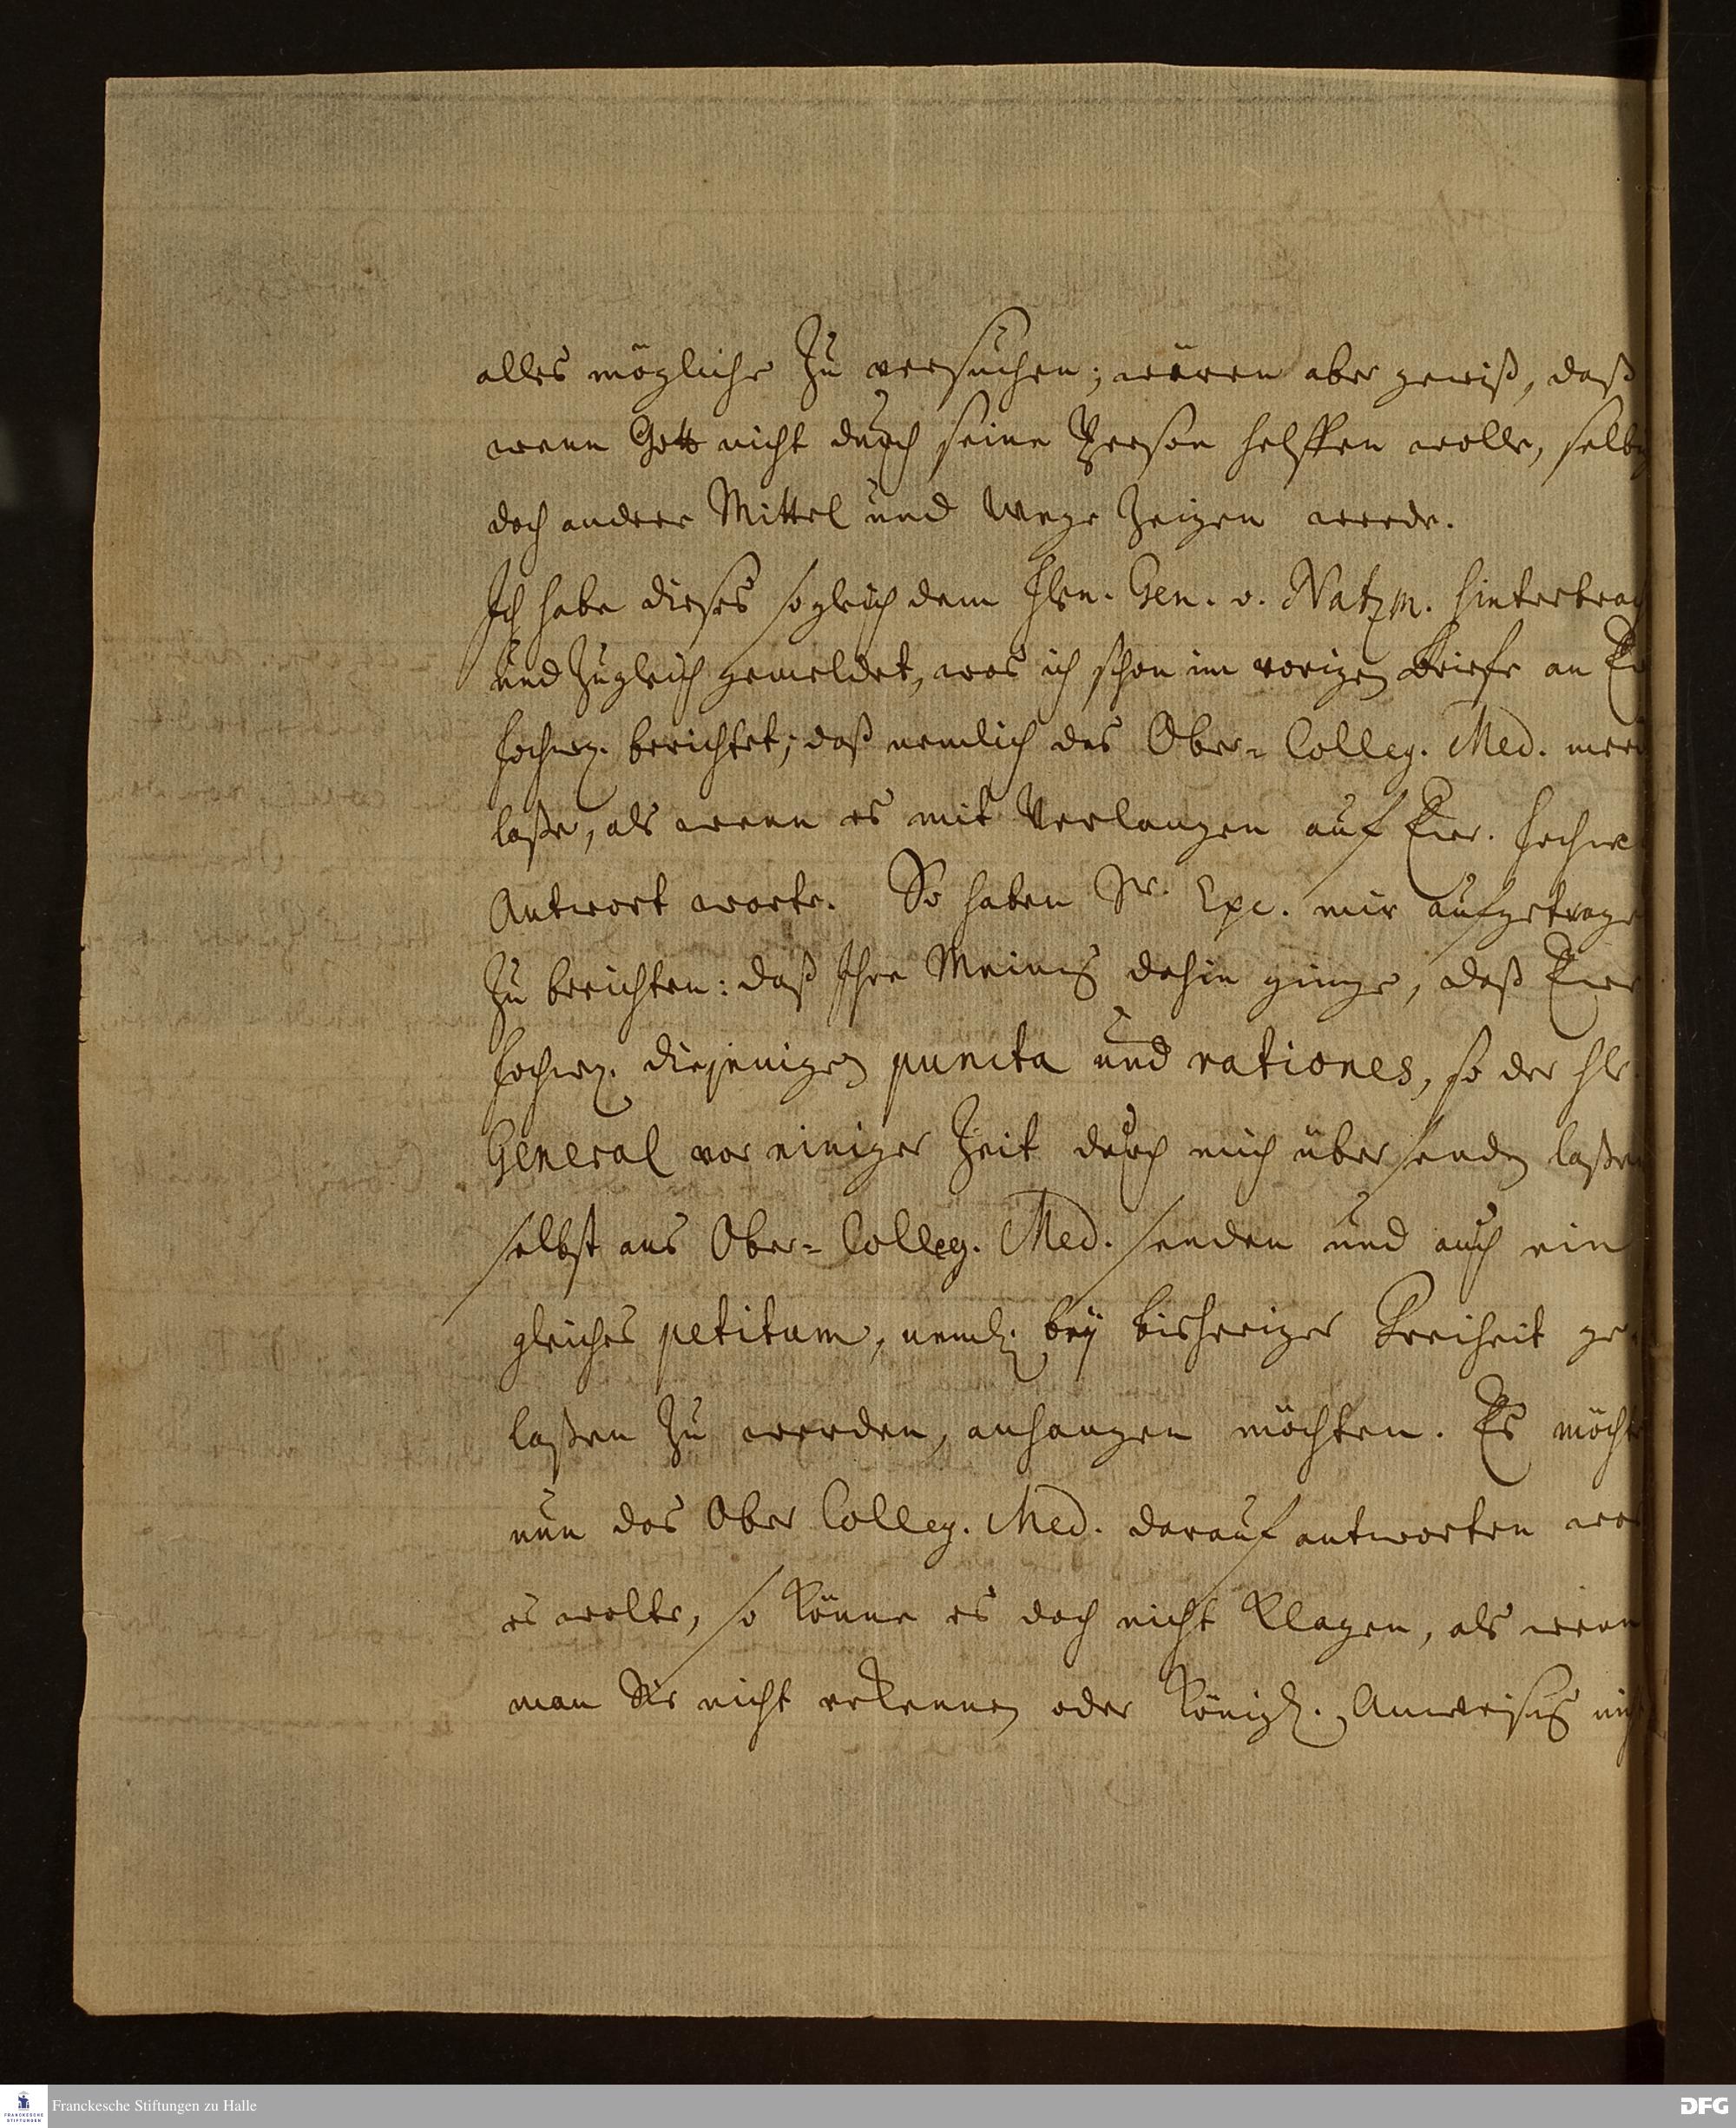 alles mögliche zu versuchen; wären aber gewiß, daß
wenn Gott nicht durch seine Person helffen wolle, selb
doch andere Mittel und Wege zeigen werde.
Ich habe dieses sogleich dem Hrn. Gen. v. Natzm. hintertrag
und zugleich gemeldet, was ich schon im vorigen Briefe an E
Hochw. berichtet; daß nemlich das Ober-Colleg. Med.
laße, als wenn es mit Verlangen auf Ewr. Hochw
Antwort warte. So haben Sr. Exc. mir aufgetrage
zu berichten: daß Ihre Meinung dahin ginge, daß Ewr
Hochw. diejenigen puncta und rationes, so der Hr.
General vor einiger Zeit durch mich übersenden laßen
selbst ans Ober-Colleg. Med. senden und auch ein
gleiches petitum, nemlich bey bisheriger Freiheit ge-
laßen zu werden, anhangen möchten. Es möchte
nun das Ober Colleg. Med. darauf antworten was
es wolte, so könne es doch nicht klagen, als wenn
man Sie nicht erkennen oder Königl. Anweisung nich
Franckesche Stiftungen zu Halle
FRANCKESCHE STIFTUNGEN
DFG